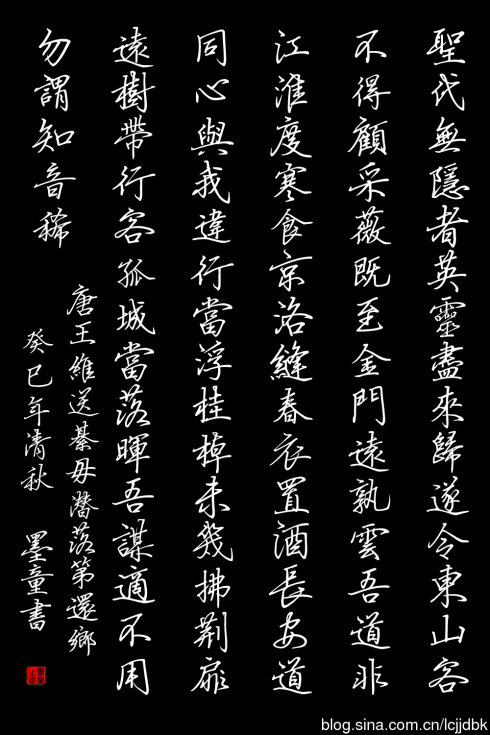 聖代無隱者英靈盡來歸遂令東山客
不得顧采薇既至金門遠孰雲吾道非
江淮度寒食京洛縫春衣置酒長安道
同心與我違行當浮桂棹未幾拂荆扉
遠樹帶行客孤城當落暉吾謀適不用
勿謂知音稀
唐王維送綦毋潛落第還鄉
癸巳年清秋 墨童書
blog.sina.com.cn/lcjjdbk